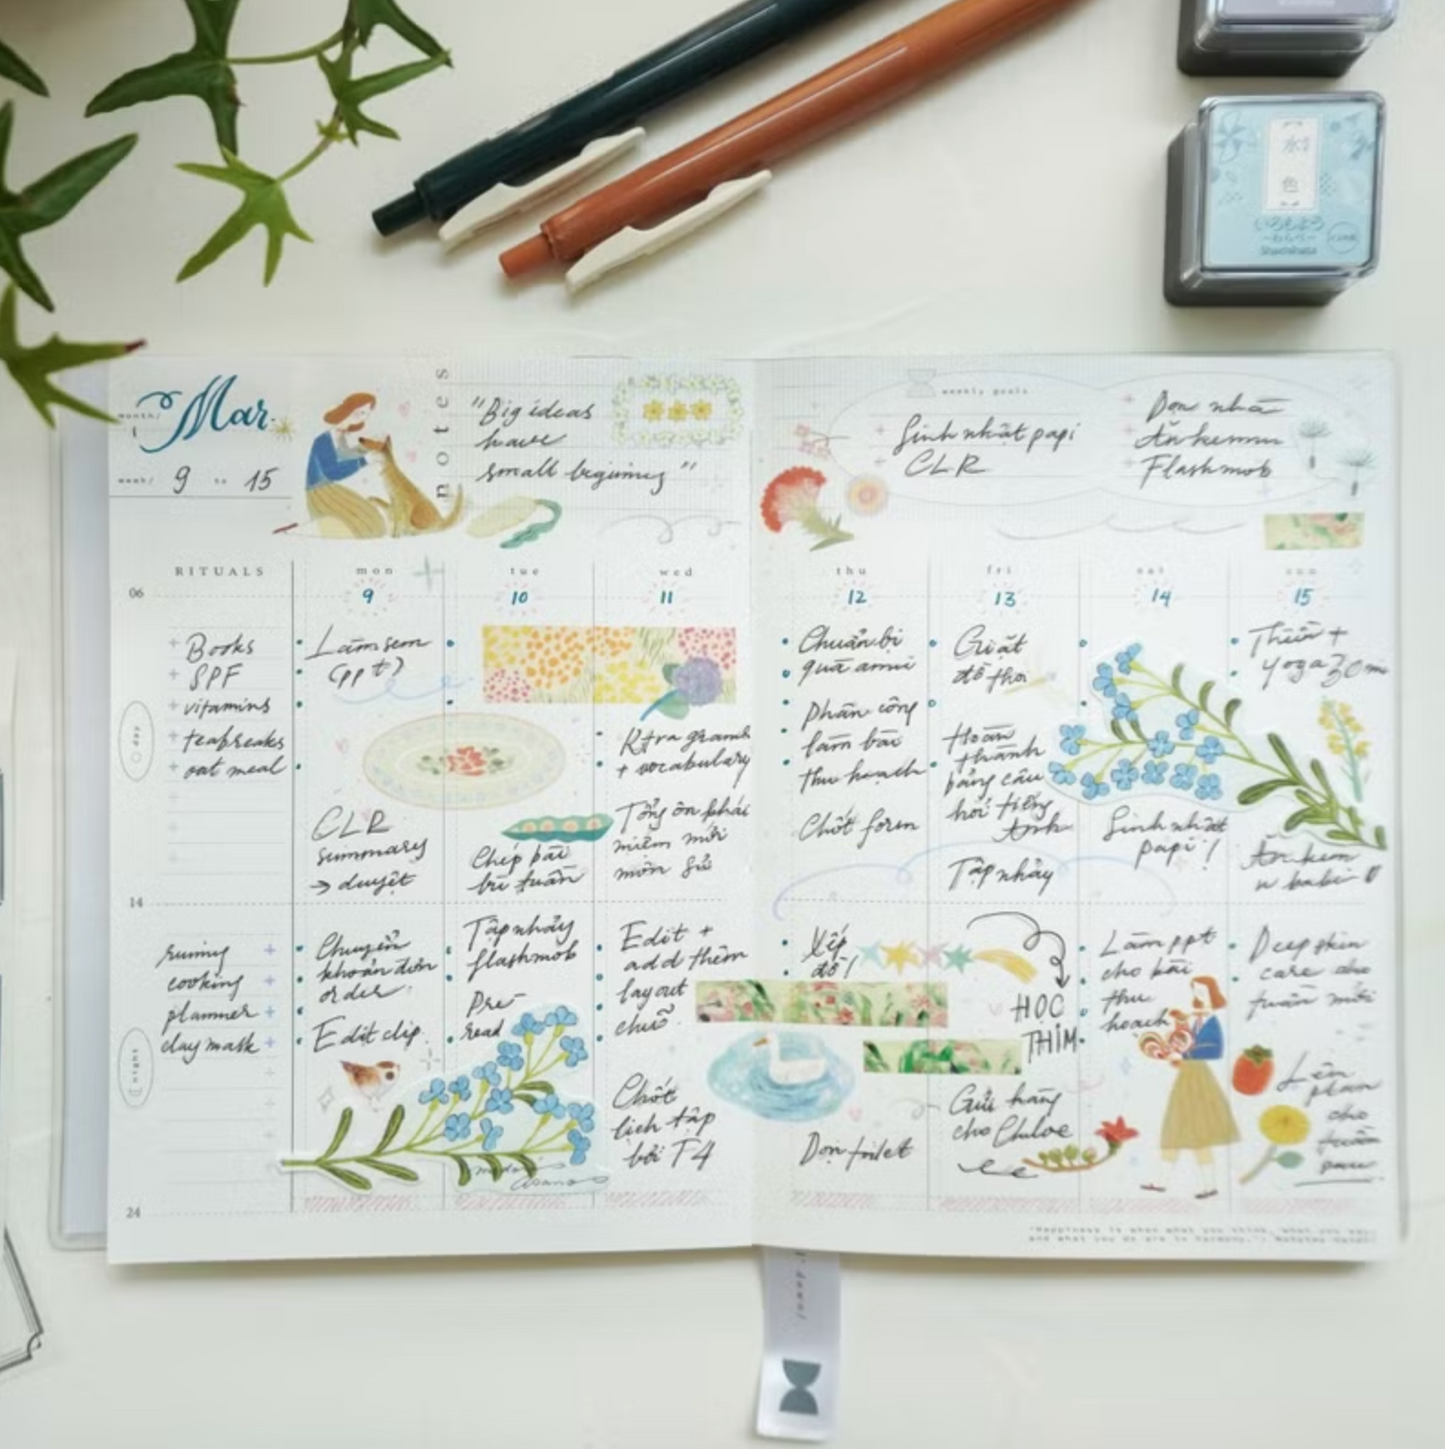 水
色
いろもよう
Shachihata
month/
Mar.
week/ 9 to 15
notes
"Big ideas
have
small beginings"
weekly goals
Sinh nhật papi
CLR
Dọn nhà
Ăn kemm
Flashmob
RITUALS
mon
tue
wed
thu
fri
sat
sun
06
9
10
11
12
13
14
15
Books
SPF
vitamins
teabreaks
oat meal
day
Làm sem
(ppt)
CLR
summary
→ duyệt
Chép bài
bù tuần
Ktra gramm
+ vocabulary
Tổng ôn phái
niệm mới
môn Sử
Chuẩn bị
quà
phân công
làm bài
thu hoạch
Chốt form
Giặt
đồ
Hoàn
thành
bảng câu
hỏi tiếng
Anh
Tập nhảy
Sinh nhật
papi!
Thiền +
yoga 30m
Ăn kem
babi
14
runing
cooking
planner
clay mask
night
Chuyển
khoản đơn
order
Edit clip
Tập nhảy
flashmob
Pre
read
Edit +
add thêm
layout
chữ
Chốt
lịch tập
bởi F4
Xếp
đồ!
Dọn toilet
HỌC
THÌM
Gửi hàng
cho Chloe
Làm ppt
cho bài
thu
hoạch
Deep skin
care cho
tuần mới
Lên
plan
cho
tuần
sau
24
"Happiness is when what you think, what you say,
and what you do are in harmony." Mahatma Gandhi